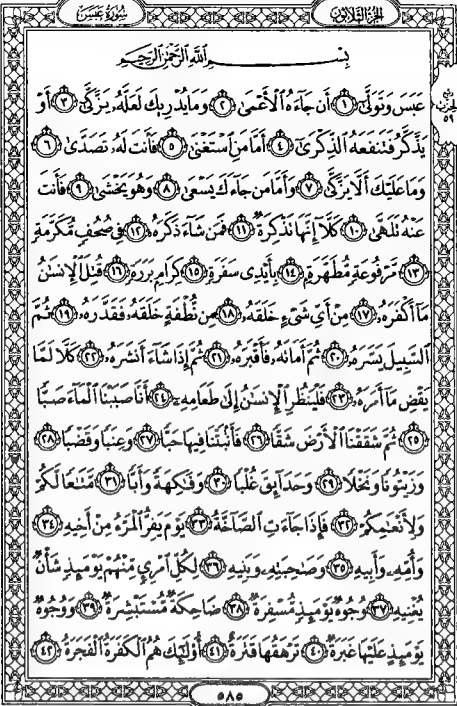 سُورَةُ عَبَسَ
الجُزءُ الثَّلَاثُونَ
بِسْمِ اللَّهِ الرَّحْمَٰنِ الرَّحِيمِ
عَبَسَ وَتَوَلَّىٰ ١ أَن جَاءَهُ الْأَعْمَىٰ ٢ وَمَا يُدْرِيكَ لَعَلَّهُ يَزَّكَّىٰ ٣ أَوْ
يَذَّكَّرُ فَتَنفَعَهُ الذِّكْرَىٰ ٤ أَمَّا مَنِ اسْتَغْنَىٰ ٥ فَأَنتَ لَهُ تَصَدَّىٰ ٦
وَمَا عَلَيْكَ أَلَّا يَزَّكَّىٰ ٧ وَأَمَّا مَن جَاءَكَ يَسْعَىٰ ٨ وَهُوَ يَخْشَىٰ ٩ فَأَنتَ
عَنْهُ تَلَهَّىٰ ١٠ كَلَّا إِنَّهَا تَذْكِرَةٌ ١١ فَمَن شَاءَ ذَكَرَهُ ١٢ فِي صُحُفٍ مُّكَرَّمَةٍ
١٣ مَّرْفُوعَةٍ مُّطَهَّرَةٍ ١٤ بِأَيْدِي سَفَرَةٍ ١٥ كِرَامٍ بَرَرَةٍ ١٦ قُتِلَ الْإِنسَٰنُ
مَا أَكْفَرَهُ ١٧ مِنْ أَيِّ شَيْءٍ خَلَقَهُ ١٨ مِن نُّطْفَةٍ خَلَقَهُ فَقَدَّرَهُ ١٩ ثُمَّ
السَّبِيلَ يَسَّرَهُ ٢٠ ثُمَّ أَمَاتَهُ فَأَقْبَرَهُ ٢١ ثُمَّ إِذَا شَاءَ أَنشَرَهُ ٢٢ كَلَّا لَمَّا
يَقْضِ مَا أَمَرَهُ ٢٣ فَلْيَنظُرِ الْإِنسَٰنُ إِلَىٰ طَعَامِهِ ٢٤ أَنَّا صَبَبْنَا الْمَاءَ صَبًّا
٢٥ ثُمَّ شَقَقْنَا الْأَرْضَ شَقًّا ٢٦ فَأَنبَتْنَا فِيهَا حَبًّا ٢٧ وَعِنَبًا وَقَضْبًا ٢٨
وَزَيْتُونًا وَنَخْلًا ٢٩ وَحَدَائِقَ غُلْبًا ٣٠ وَفَٰكِهَةً وَأَبًّا ٣١ مَّتَٰعًا لَّكُمْ
وَلِأَنْعَٰمِكُمْ ٣٢ فَإِذَا جَاءَتِ الصَّاخَّةُ ٣٣ يَوْمَ يَفِرُّ الْمَرْءُ مِنْ أَخِيهِ ٣٤
وَأُمِّهِ وَأَبِيهِ ٣٥ وَصَٰحِبَتِهِ وَبَنِيهِ ٣٦ لِكُلِّ امْرِئٍ مِّنْهُمْ يَوْمَئِذٍ شَأْنٌ
يُغْنِيهِ ٣٧ وُجُوهٌ يَوْمَئِذٍ مُّسْفِرَةٌ ٣٨ ضَاحِكَةٌ مُّسْتَبْشِرَةٌ ٣٩ وَوُجُوهٌ
يَوْمَئِذٍ عَلَيْهَا غَبَرَةٌ ٤٠ تَرْهَقُهَا قَتَرَةٌ ٤١ أُولَٰئِكَ هُمُ الْكَفَرَةُ الْفَجَرَةُ ٤٢
٥٨٥